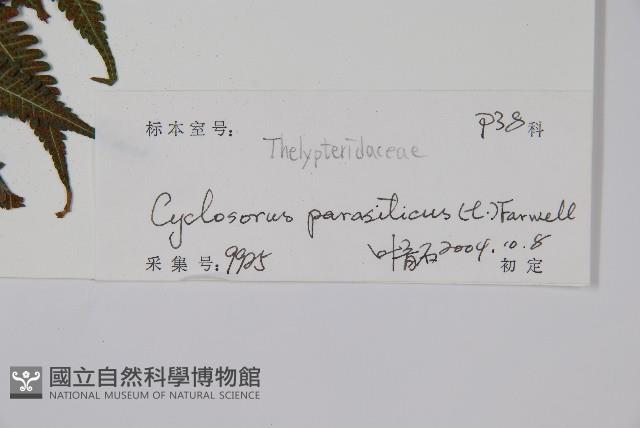 标本室号: P38科
Thelypteridaceae
Cyclosorus parasiticus (L.) Farwell
采集号: 9925 叶育石 2004.10.8 初定
國立自然科學博物館
NATIONAL MUSEUM OF NATURAL SCIENCE